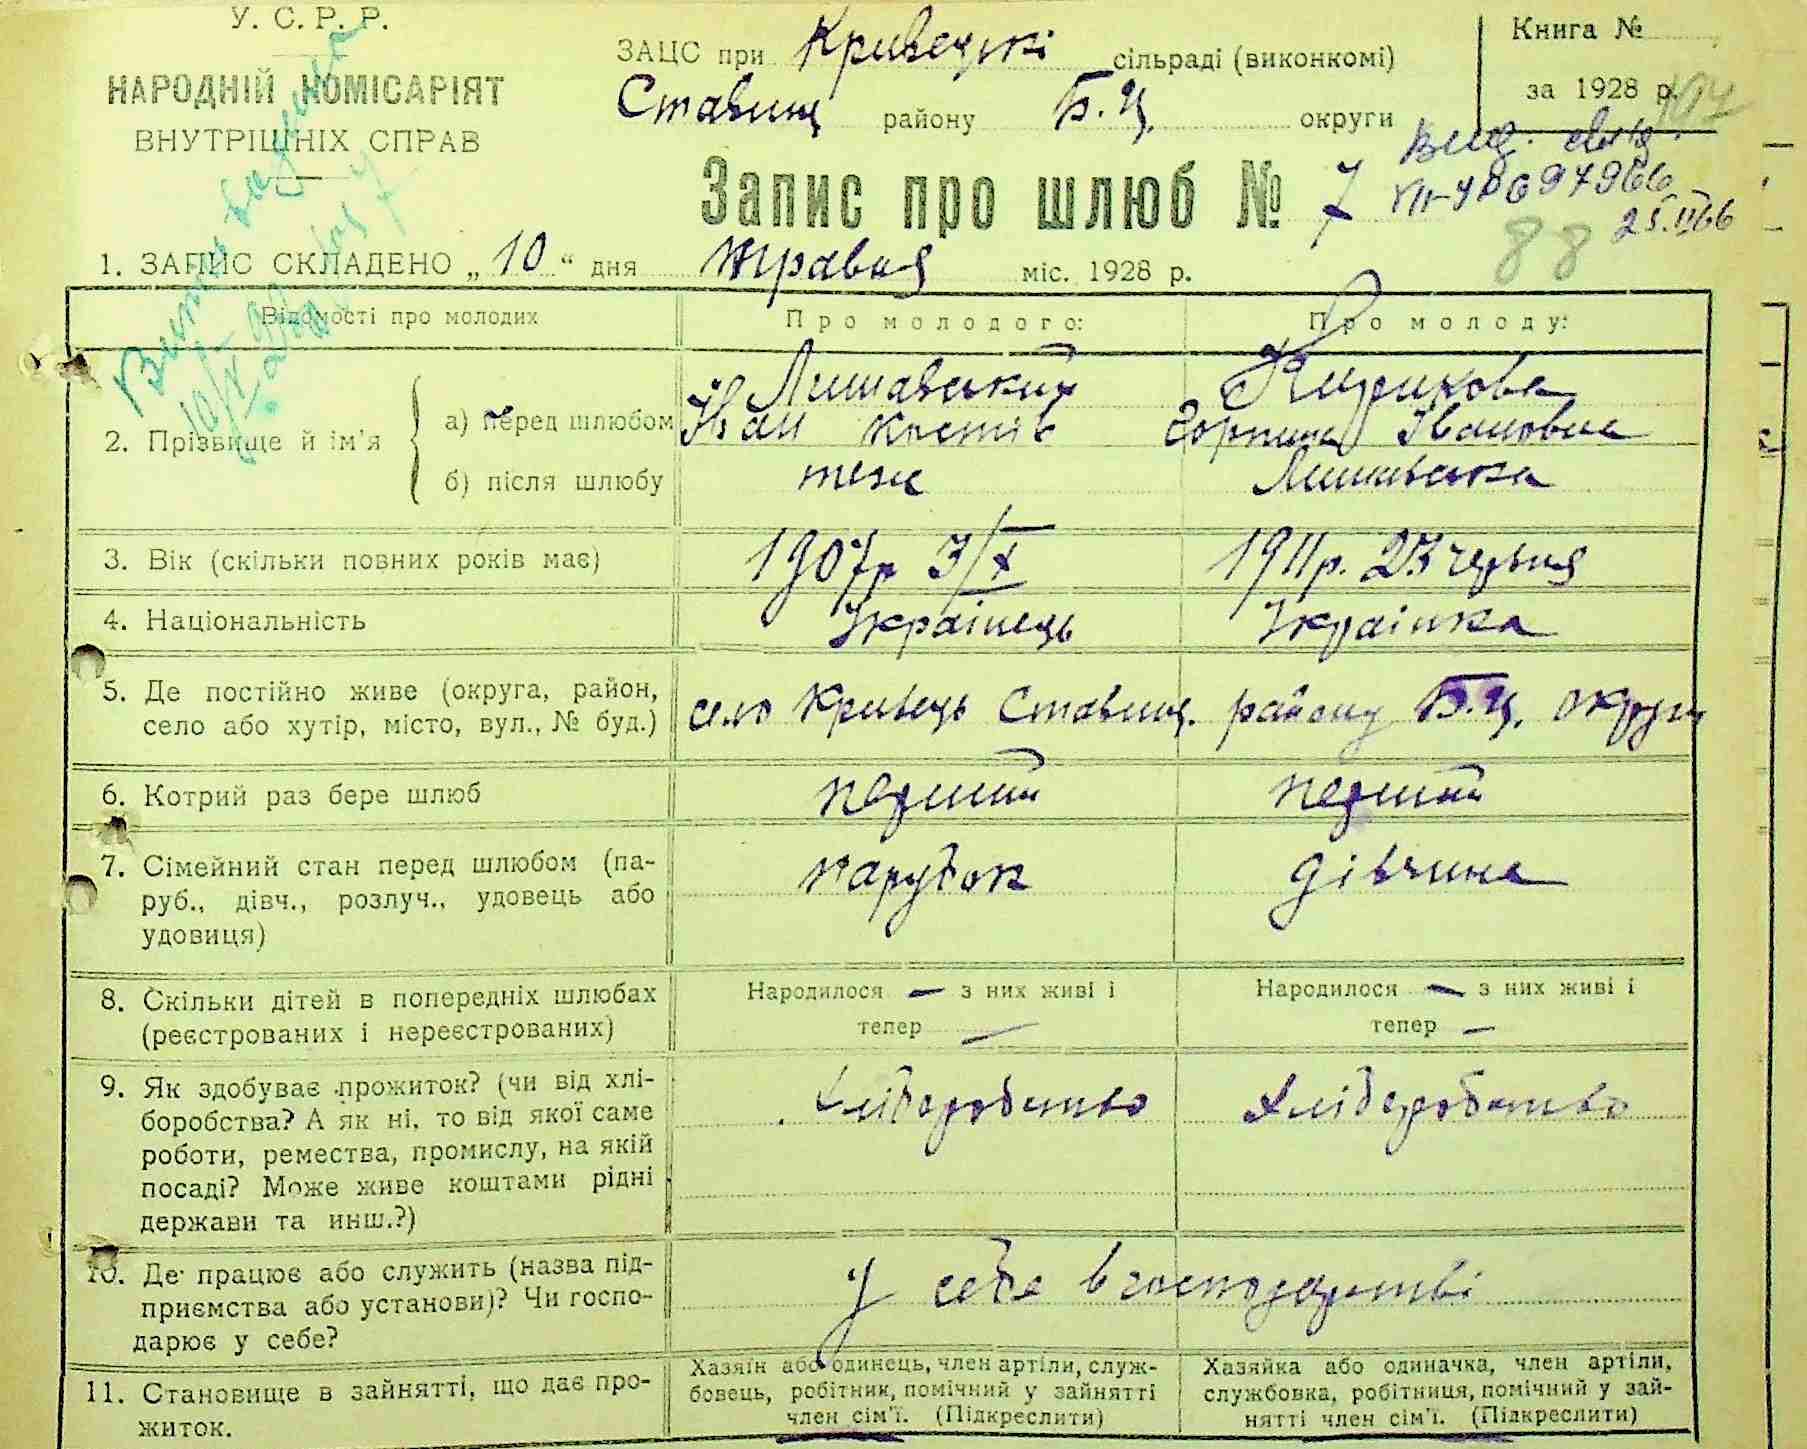 У. С. Р. Р.
НАРОДНІЙ КОМІСАРІЯТ
ВНУТРІШНІХ СПРАВ
ЗАЦС при Кривецькі сільраді (виконкомі)
Ставищ району Б.Ц. округи
Книга №
за 1928 р.
Запис про шлюб № 7
25.II 66
88
1. ЗАПИС СКЛАДЕНО „10“ дня травня міс. 1928 р.
Відомості про молодих
Про молодого:
Про молоду:
2. Прізвище й ім'я
а) перед шлюбом
Лишавський
Іван Костів
Кирикова
Горпина Івановна
б) після шлюбу
теж
Лишавська
3. Вік (скільки повних років має)
1907р 3/X
1911р. 23 червня
4. Національність
Українець
Українка
5. Де постійно живе (округа, район,
село або хутір, місто, вул., № буд.)
село Кривець Ставищ. району Б.Ц. округи
6. Котрий раз бере шлюб
перший
перший
7. Сімейний стан перед шлюбом (па-
руб., дівч., розлуч., удовець або
удовиця)
парубок
дівчина
8. Скільки дітей в попередніх шлюбах
(реєстрованих і нереєстрованих)
Народилося — з них живі і
тепер —
Народилося — з них живі і
тепер —
9. Як здобуває прожиток? (чи від хлі-
боробства? А як ні, то від якої саме
роботи, ремества, промислу, на якій
посаді? Може живе коштами рідні
держави та инш.?)
Хліборобство
Хліборобство
10. Де працює або служить (назва під-
приємства або установи)? Чи госпо-
дарює у себе?
у себе в господарстві
11. Становище в зайнятті, що дає про-
житок.
Хазяїн або одинець, член артіли, служ-
бовець, робітник, помічний у зайнятті
член сім'ї. (Підкреслити)
Хазяйка або одиначка, член артіли,
службовка, робітниця, помічний у зай-
нятті член сім'ї. (Підкреслити)